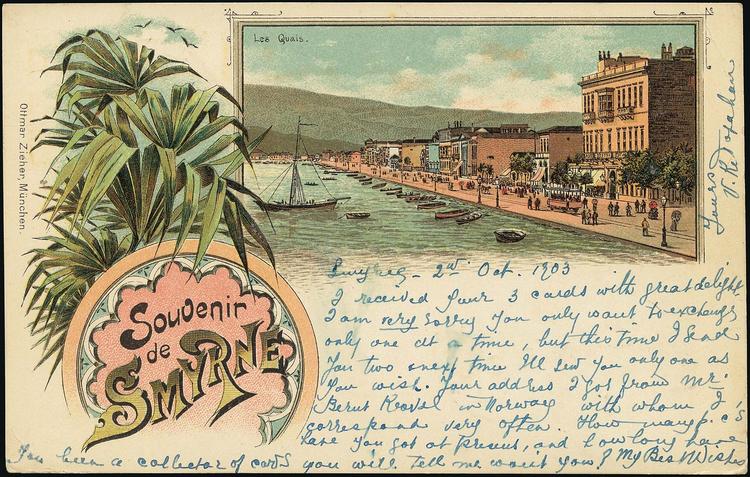 Les Quais.
Ottmar Zieher, München.
Souvenir
de
SMYRNE
2nd Oct. 1903
I received your 3 cards with great delight
I am very sorry you only want to exchange
only one at a time, but this time I send
you two & next time I'll sew you only one as
you wish. Your address I got from Mr.
in Norway with whom I
correspond very often. How many p.c's
have you got at present, and how long have
you been a collector of cards you will tell me won't you? My Best Wishes
Yours